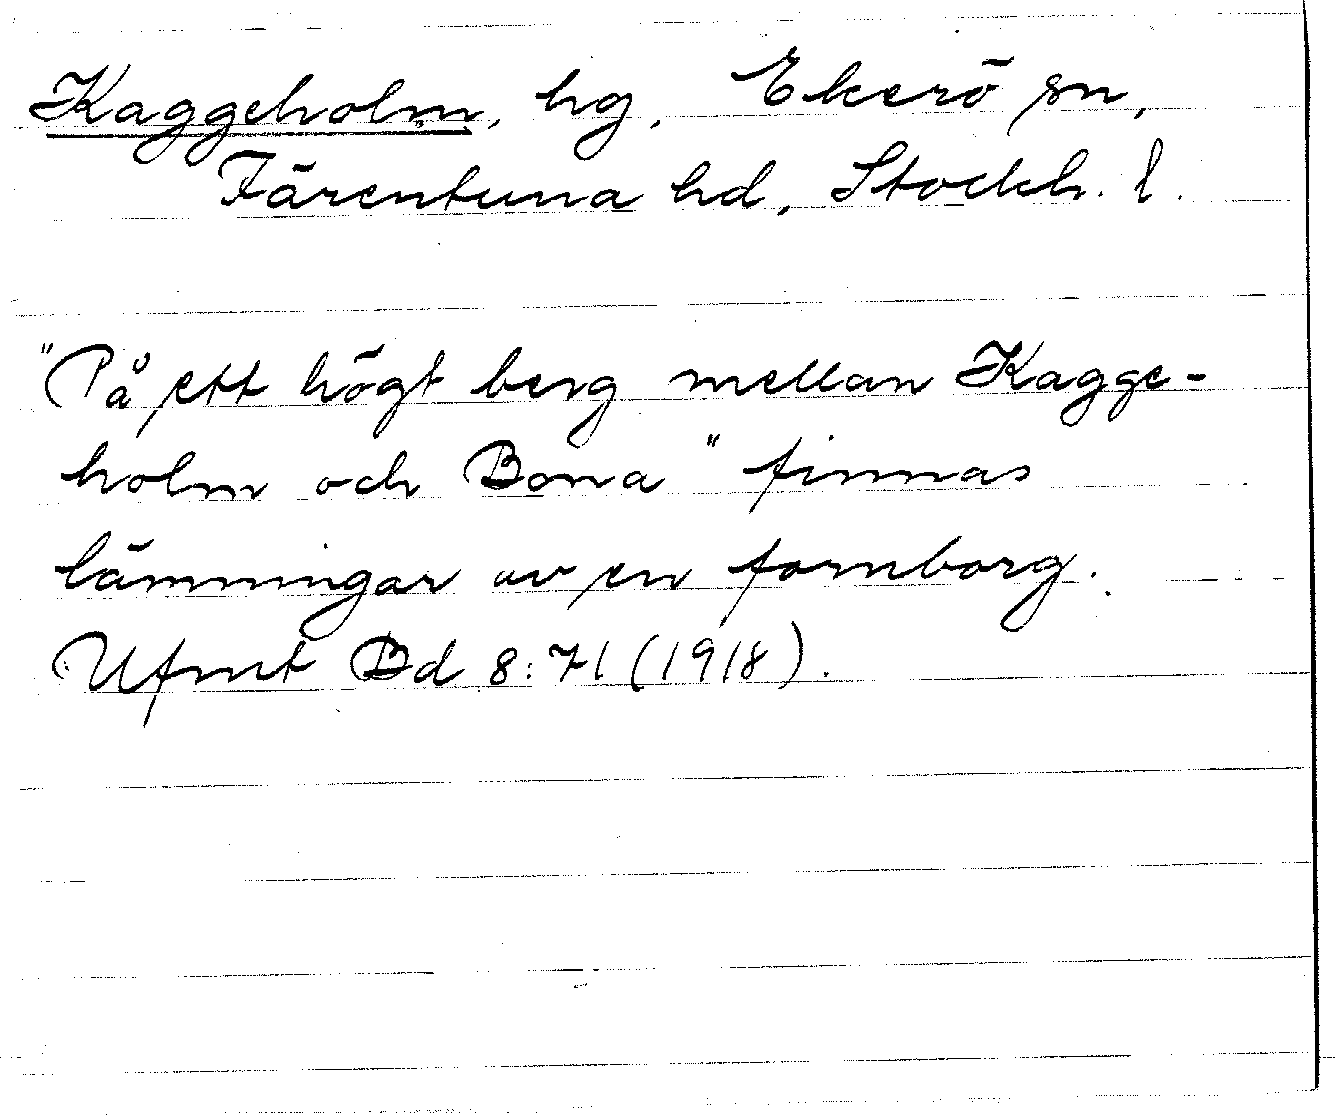 Kaggeholm, hg, Ekerö sn,
Färentuna hd, Stockh. l.
"På ett högt berg mellan Kagge-
holm och Bona" finnas
lämningar av en fornborg.
Ufmt Bd 8:71 (1918).